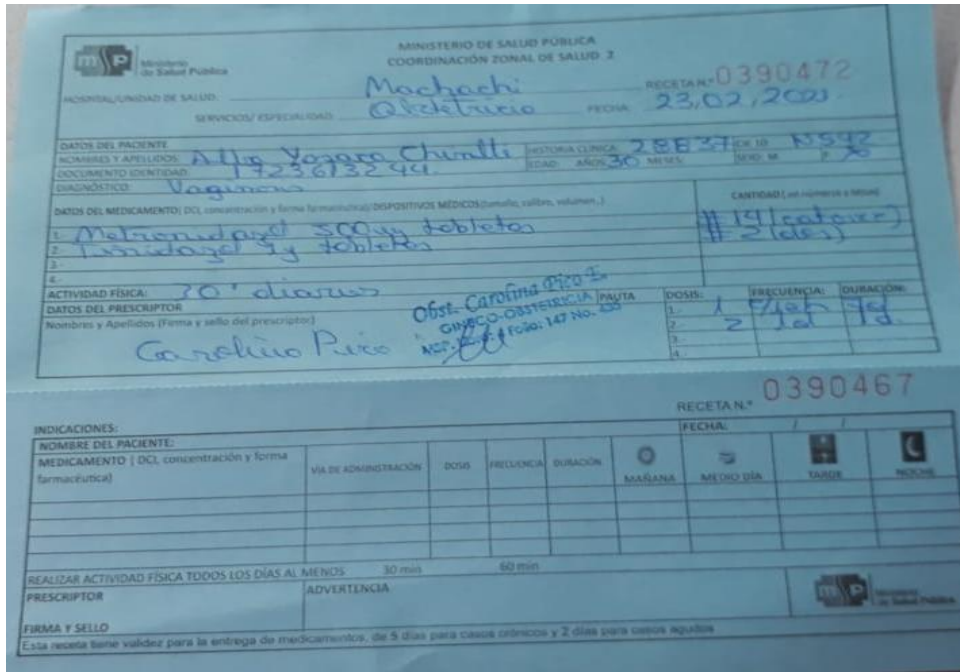 Ministerio de Salud Pública
MINISTERIO DE SALUD PÚBLICA
COORDINACIÓN ZONAL DE SALUD 2
HOSPITAL/UNIDAD DE SALUD: Machachi RECETA N.° 0390472
SERVICIOS/ ESPECIALIDAD: Obstetricia FECHA: 23,02,
DATOS DEL PACIENTE
NOMBRES Y APELLIDOS: HISTORIA CLINICA: 28837
DOCUMENTO IDENTIDAD: EDAD: AÑOS 30 MESES: SEXO: M F
DIAGNÓSTICO: Vaginosis
DATOS DEL MEDICAMENTO( DCI, concentración y forma farmacéutica)/DISPOSITIVOS MÉDICOS(tamaño, calibre, volumen..) CANTIDAD ( en números y letras)
1.- Metronidazol 500 tabletas # 14 (catorce)
2.- Tinidazol 1g tabletas # 2 (dos)
3.-
4.-
ACTIVIDAD FÍSICA: 30' diarios
DATOS DEL PRESCRIPTOR PAUTA DOSIS: FRECUENCIA: DURACIÓN:
Nombres y Apellidos (Firma y sello del prescriptor)
Obst. Carolina Pico E.
GINECO-OBSTETRICIA
Folio: 147 No.
Carolina Pico
1.- 1 7d
2.- 2 1d
3.-
4.-
RECETA N.° 0390467
INDICACIONES: FECHA: / /
NOMBRE DEL PACIENTE:
MEDICAMENTO ( DCI, concentración y forma farmacéutica) VÍA DE ADMINISTRACIÓN DOSIS FRECUENCIA DURACIÓN MAÑANA MEDIO DÍA TARDE NOCHE
REALIZAR ACTIVIDAD FÍSICA TODOS LOS DÍAS AL MENOS 30 min 60 min
PRESCRIPTOR ADVERTENCIA
Ministerio de Salud Pública
FIRMA Y SELLO
Esta receta tiene validez para la entrega de medicamentos, de 5 días para casos crónicos y 2 días para casos agudos